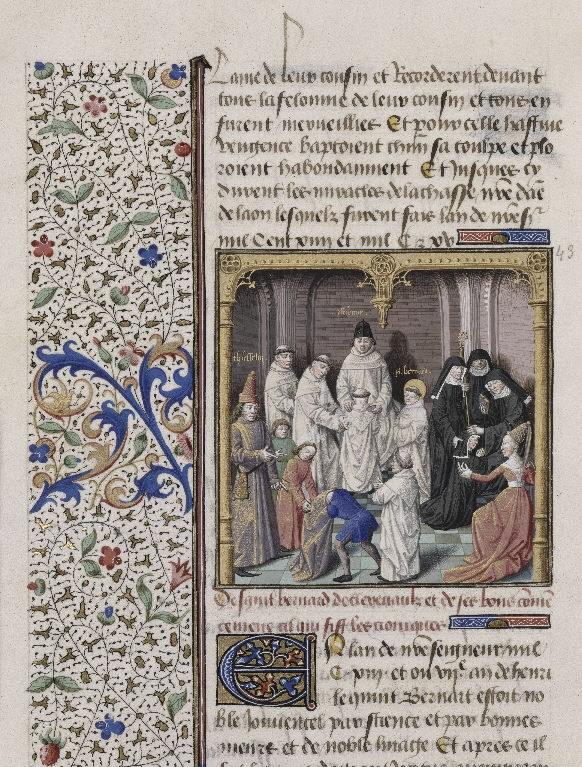 Lame de leur cousin et Recorderent deuant
tous la felonnie de leur cousin et tous en
furent merueillies Et pour celle hastiue
vengence baptoient chun sa coulpe et plo
roient habondamment Et Jusques cy
durent les miracles de la chasse nre dae
de laon lesquelz furent fais lan de nres sr
mil Cent xiiii et mil C xv
43
st bernard
De saint bernard de cleruaulx et de ses bons comme
cemens cil qui fist les croniques
En lan de nre seigneur mil
C xiii et ou viiie an de henri
le quint Bernart estoit no
ble Jouuencel par science et par bonnes
meurs et de noble linage Et apres ce il